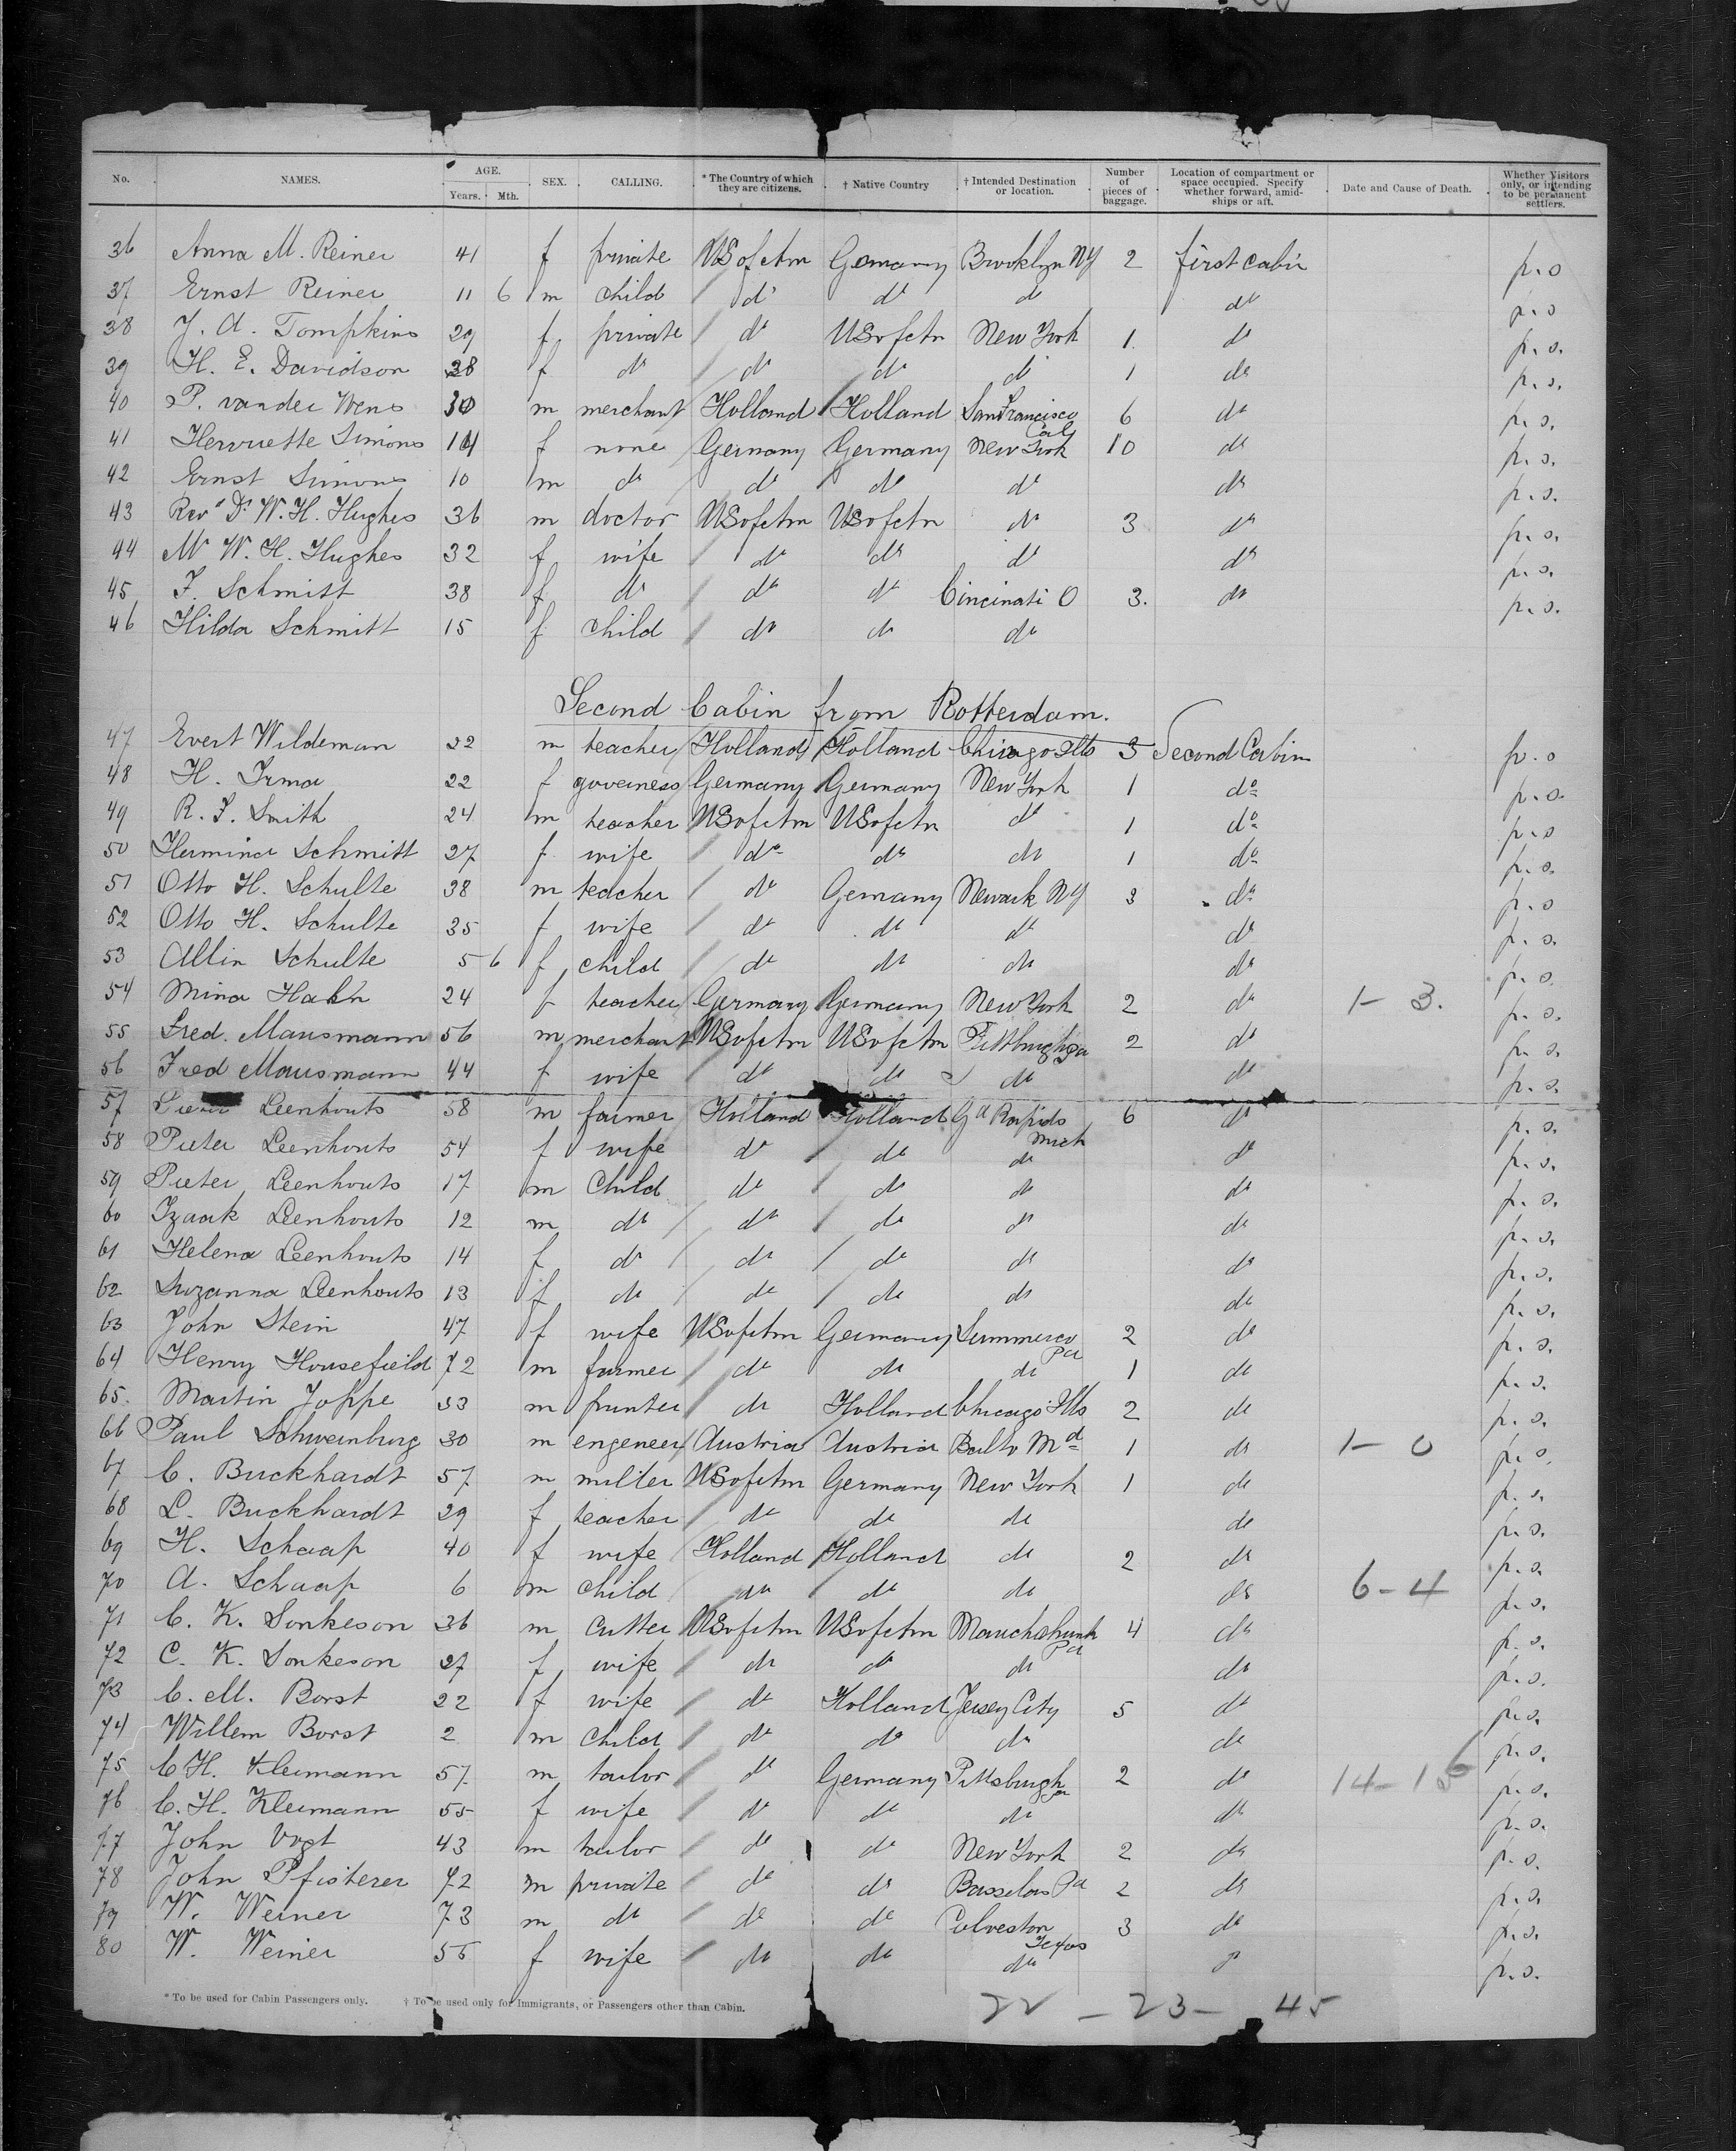 No. NAMES. AGE. Years. Mth. SEX. CALLING. * The Country of which they are citizens. † Native Country † Intended Destination or location. Number of pieces of baggage. Location of compartment or space occupied. Specify whether forward, amidships or aft. Date and Cause of Death. Whether Visitors only, or intending to be permanent settlers.
36 Anna M. Reiner 41 f private US of Am Gemany Brooklyn NY 2 first cabin p.s
37 Ernst Reiner 11 6 m child do do do do p.s
38 J. A. Tompkins 29 f private do US of Am New York 1. do p.s.
39 H. E. Davidson 28 f do do do do 1 do p.s.
40 P. vander Wens 30 m merchant Holland Holland San Francisco Cal 6 do p.s.
41 Henriette Simons 14 f none Germany Germany New York 10 do p.s.
42 Ernst Simons 10 m do do do do do p.s.
43 Revd Dr W. H. Hughes 36 m doctor US of Am US of Am do 3 do p.s.
44 M W. H. Hughes 32 f wife do do do do p.s.
45 F. Schmitt 38 f do do do Cincinati O 3. do p.s.
46 Hilda Schmitt 15 f child do do do
Second Cabin from Rotterdam.
47 Evert Wildeman 22 m teacher Holland Holland Chicago Ills 3 Second Cabin p.s
48 H. Irma 22 f governess Germany Germany New York 1 do p.s.
49 R. F. Smith 24 m teacher US of Am US of Am do 1 do p.s
50 Hermina Schmitt 27 f wife do do do 1 do p.s.
51 Otto H. Schulte 38 m teacher do Gemany Newark NY 3 do p.s
52 Otto H. Schulte 35 f wife do do do do p.s.
53 Allin Schulte 5 6 f child do do do do p.s
54 Mina Hahn 24 f teacher Germany Germany New York 2 do 1 - 3. p.s.
55 Fred. Mausmann 56 m merchant US of Am US of Am Pittburgh pa 2 do p.s.
56 Fred Mausmann 44 f wife do do do do p.s.
57 Pieter Leenhouts 58 m farmer Holland Holland Gd Rapids Mich 6 do p.s.
58 Pieter Leenhouts 54 f wife do do do do p.s.
59 Pieter Leenhouts 17 m Child do do do do p.s.
60 Izaak Leenhouts 12 m do do do do do p.s.
61 Helena Leenhouts 14 f do do do do do p.s.
62 Suzanna Leenhouts 13 f do do do do do p.s.
63 John Stein 47 f wife US of Am Germany Pa 2 do p.s.
64 Henry Housefield 72 m farmer do do do 1 do p.s.
65. Martin Joppe 33 m printer do Holland Chicago Ills 2 do p.s.
66 Paul Schweinburg 30 m engeneer Austria Austria Balto Md 1 do 1 - 0 p.s.
67 C. Buckhardt 57 m miller US of Am Germany New York 1 do p.s.
68 L. Buckhardt 29 f teacher do do do do p.s.
69 H. Schaap 40 f wife Holland Holland do 2 do p.s.
70 A. Schaap 6 m child do do do do 6 - 4 p.s.
71 C. K. Sonkeson 36 m cutter US of Am US of Am Mauchchunk Pa 4 do p.s.
72 C. K. Sonkeson 27 f wife do do do do p.s.
73 C. M. Borst 22 f wife do Holland Jersey City 5 do p.s.
74 Willem Borst 2 m child do do do do p.s.
75 C H. Kleimann 57 m tailor do Germany Pittsburgh pa 2 do 14 - 16 p.s.
76 C. H. Kleimann 55 f wife do do do do p.s.
77 John Vogt 43 m tailor do do New York 2 do p.s.
78 John Pfisterer 42 m private do do Pa 2 do p.s.
79 W. Weiner 73 m do do do Texas 3 do p.s.
80 W. Weiner 55 f wife do do do do p.s.
* To be used for Cabin Passengers only. † To be used only for Immigrants, or Passengers other than Cabin.
22 - 23 - 45